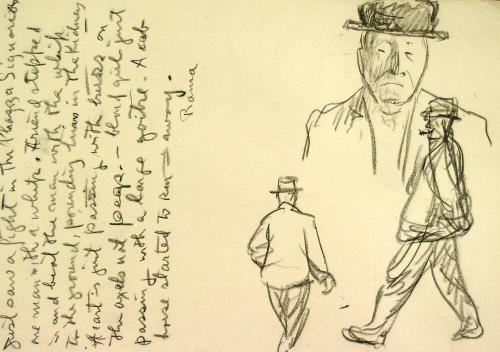 Just saw a fight in the Piazza Signoria
one man with a whip. A friend stepped
in and beat the man with the whip
to the ground, pounding him in the kidneys
A cart is just passing with husks on
the axels not peeps. – blond girl just
passing with a large goitre. A cab
horse started to run away.
Rama